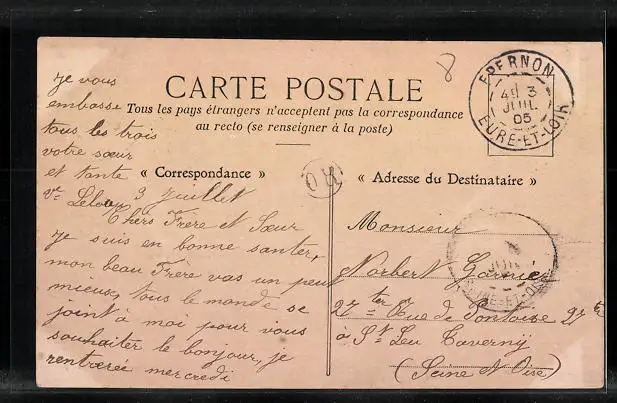 CARTE POSTALE
Tous les pays étrangers n'acceptent pas la correspondance
au recto (se renseigner à la poste)
8
EPERNON
4E 3
JUIL
05
EURE-ET-LOIR
« Correspondance »
OR
« Adresse du Destinataire »
je vous
embrasse
tous les trois
votre sœur
et tante
Vve Leloup
3 juillet
Chers Frere et Sœur
Je suis en bonne santer,
mon beau Frère vas un peut
mieux, tous le monde se
joint à moi pour vous
souhaiter le bonjour, je
rentrerée mercredi
Monsieur
Norbert
27 ter Rue de Pontoise 27 ter
à St Leu Taverny
(Seine et Oise)
SEINE-ET-OISE